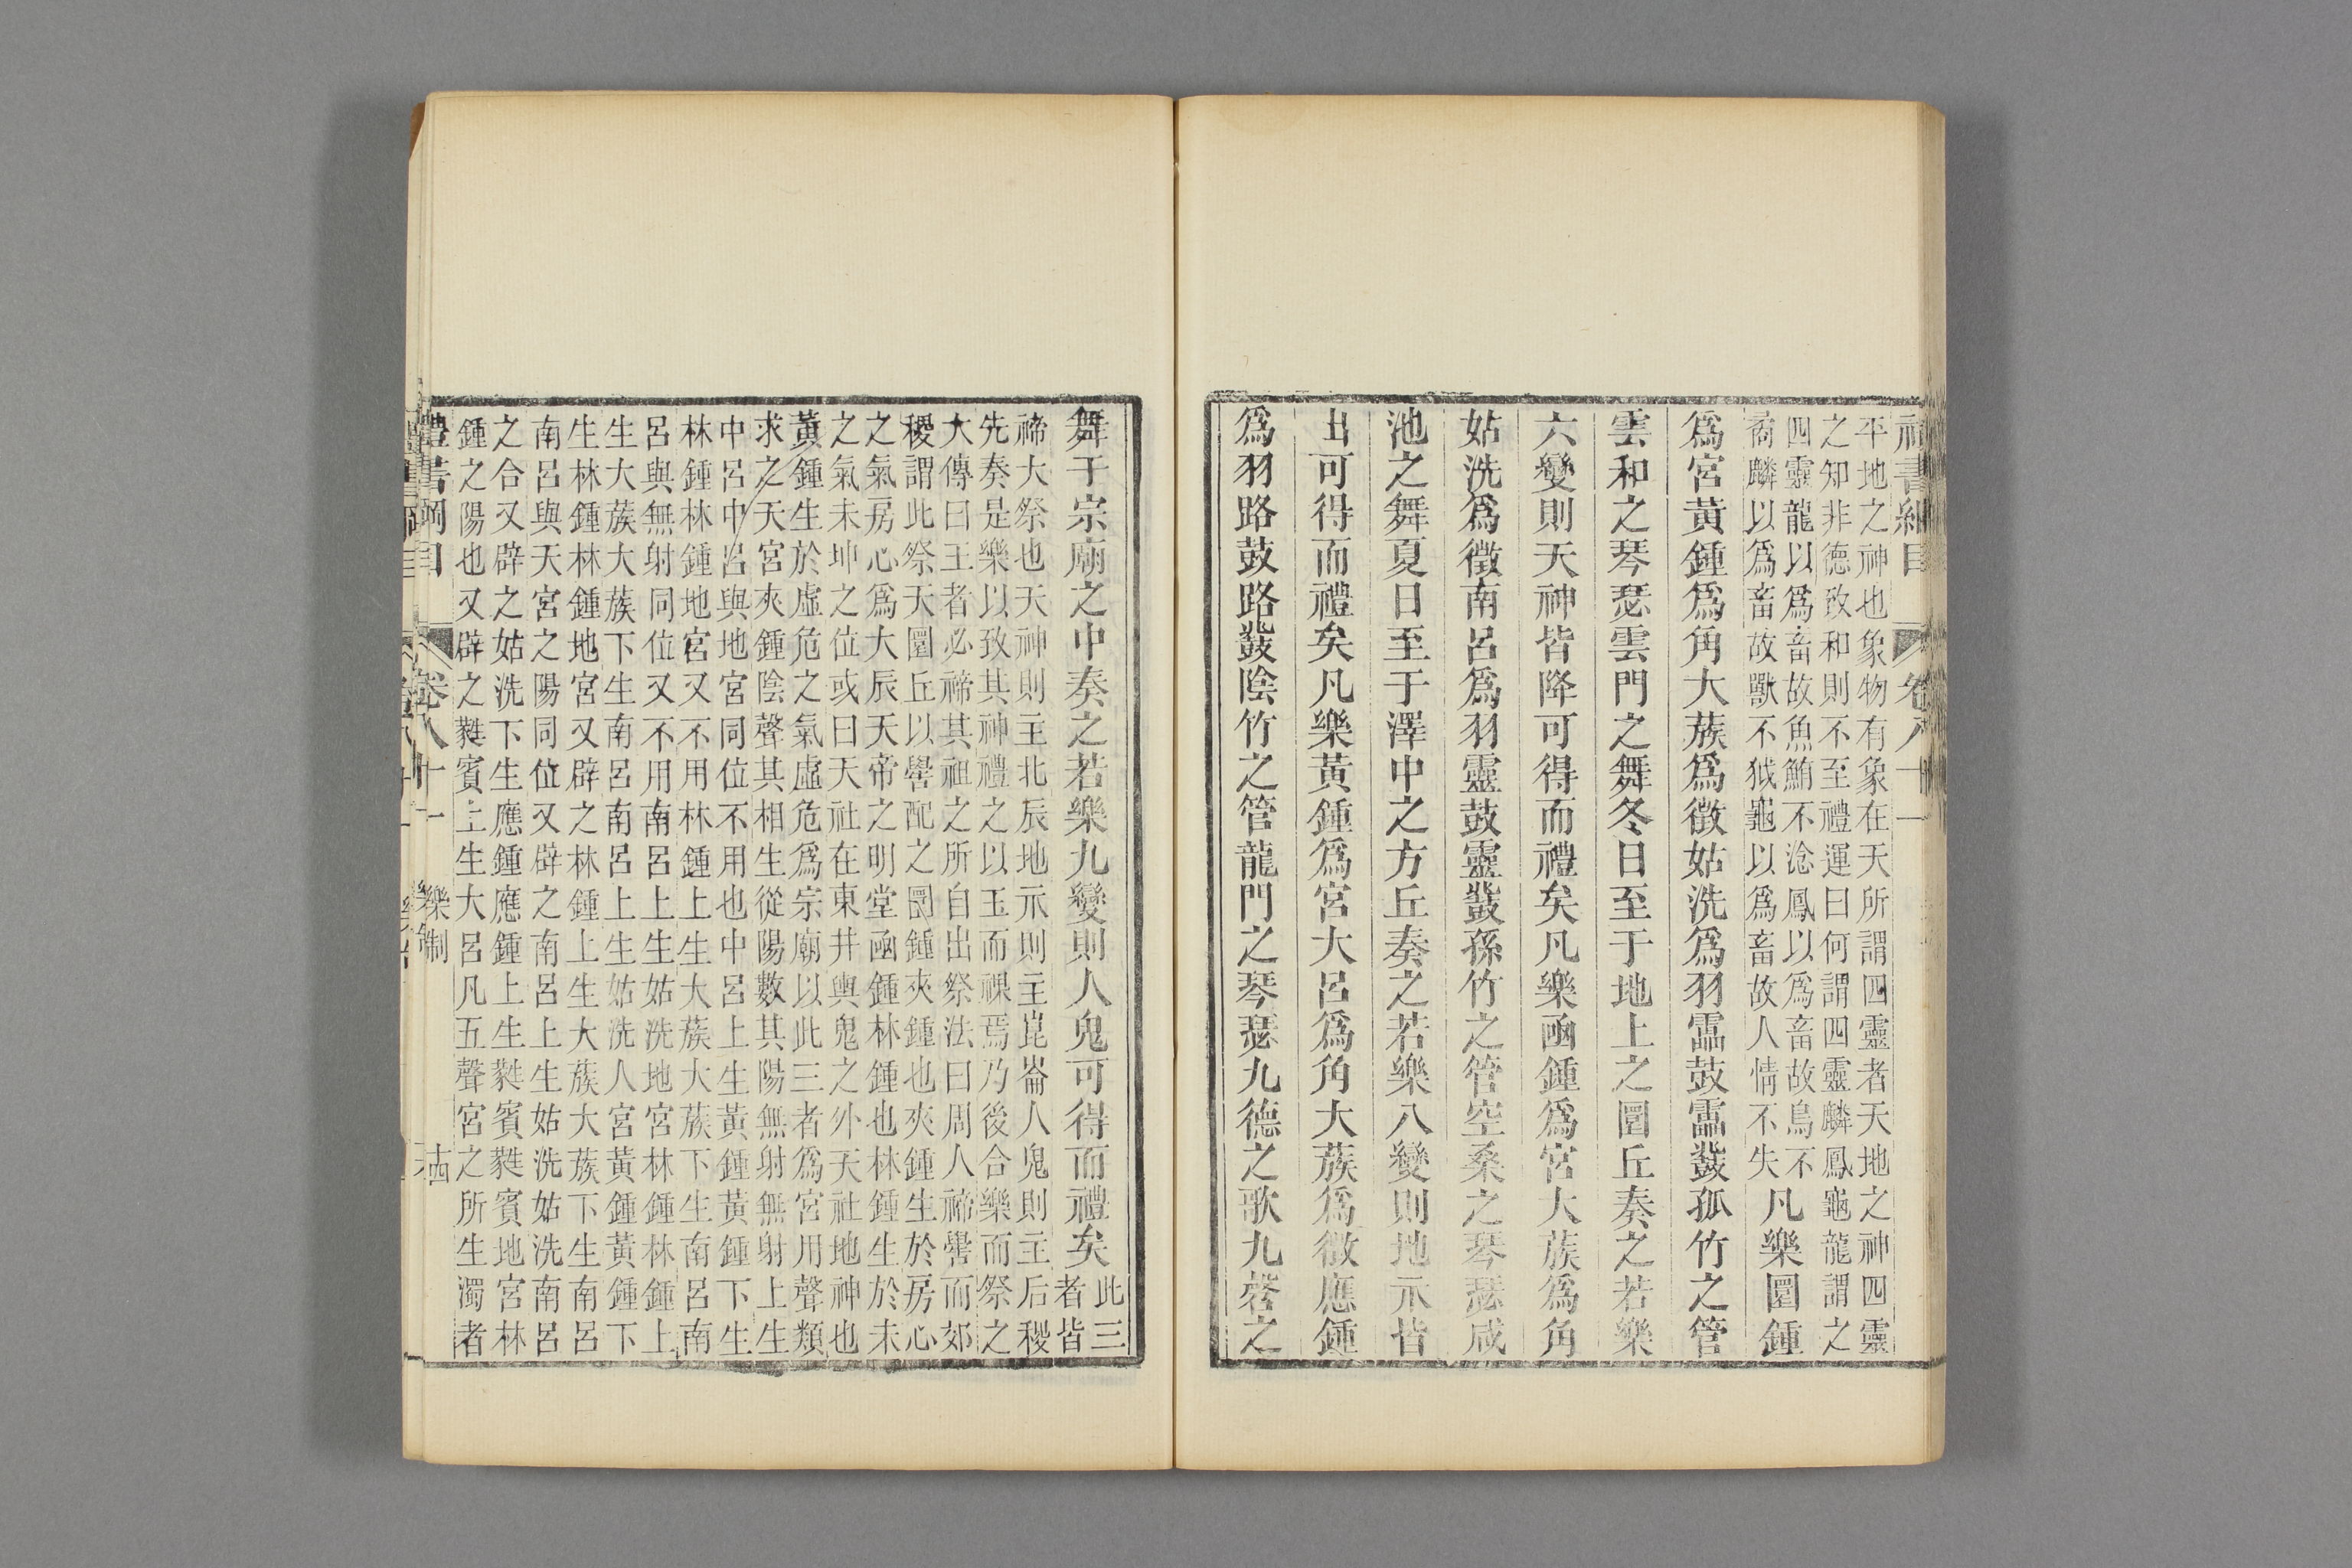 平地之神也象物有象在天所謂四靈者天地之神四靈
之知非德致和則不至禮運曰何謂四靈麟鳳龜龍謂之
四靈龍以爲畜故魚鮪不淰鳳以爲畜故鳥不
獝麟以爲畜故獸不狘龜以爲畜故人情不失凡樂圜鍾
爲宮黃鍾爲角大蔟爲徵姑洗爲羽靁鼓靁鼗孤竹之管
雲和之琴瑟雲門之舞冬日至于地上之圜丘奏之若樂
六變則天神皆降可得而禮矣凡樂函鍾爲宮大蔟爲角
姑洗爲徵南呂爲羽靈鼓靈鼗孫竹之管空桑之琴瑟咸
池之舞夏日至于澤中之方丘奏之若樂八變則地示皆
出可得而禮矣凡樂黃鍾爲宮大呂爲角大蔟爲徵應鍾
爲羽路鼓路鼗陰竹之管龍門之琴瑟九德之歌九㲈之
舞于宗廟之中奏之若樂九變則人鬼可得而禮矣此三
者皆
禘大祭也天神則主北辰地示則主崑崙人鬼則主后稷
先奏是樂以致其神禮之以玉而祼焉乃後合樂而祭之
大傳曰王者必禘其祖之所自出祭法曰周人禘嚳而郊
稷謂此祭天圜丘以嚳配之圜鍾夾鍾也夾鍾生於房心
之氣房心爲大辰天帝之明堂函鍾林鍾也林鍾生於未
之氣未坤之位或曰天社在東井輿鬼之外天社地神也
黃鍾生於虛危之氣虛危爲宗廟以此三者爲宮用聲類
求之天宮夾鍾陰聲其相生從陽數其陽無射無射上生
中呂中呂與地宮同位不用也中呂上生黃鍾黃鍾下生
林鍾林鍾地宮又不用林鍾上生大蔟大蔟下生南呂南
呂與無射同位又不用南呂上生姑洗地宮林鍾林鍾上
生大蔟大蔟下生南呂南呂上生姑洗人宮黃鍾黃鍾下
生林鍾林鍾地宮又辟之林鍾上生大蔟大蔟下生南呂
南呂與天宮之陽同位又辟之南呂上生姑洗姑洗南呂
之合又辟之姑洗下生應鍾應鍾上生蕤賓蕤賓地宮林
鍾之陽也又辟之蕤賓上生大呂凡五聲宮之所生濁者
禮書綱目 卷八十一 樂制 十四